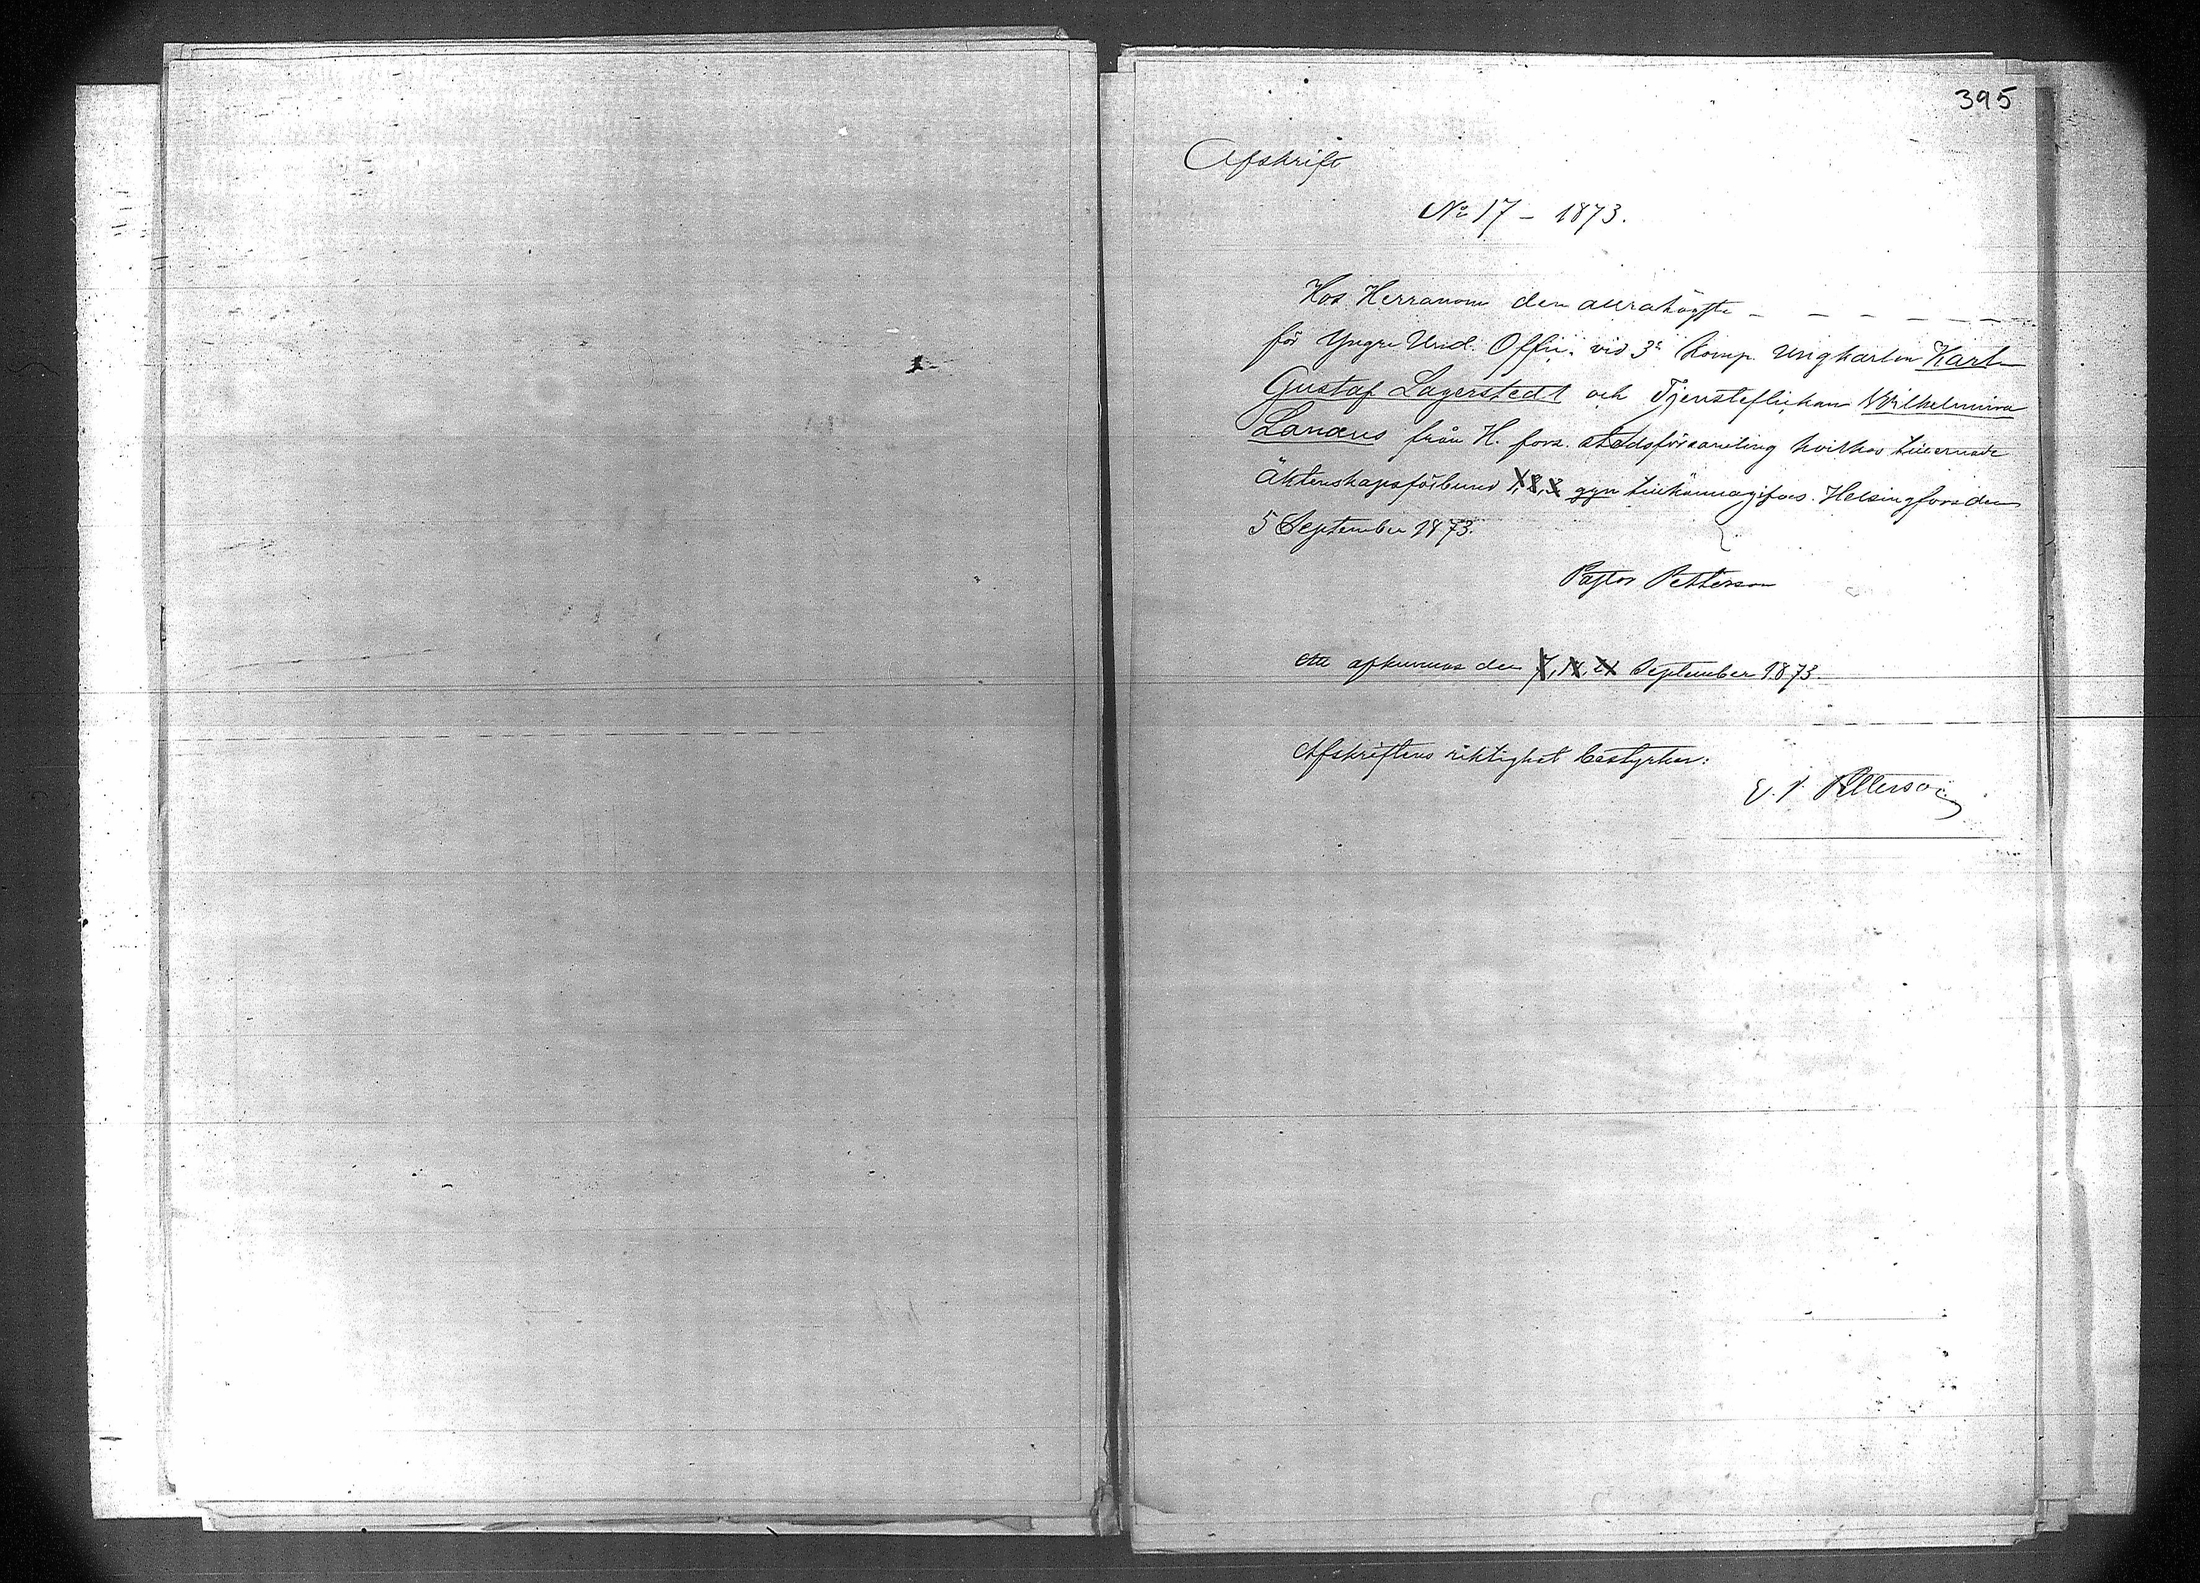 395
Afskrift
No 17 – 1873.
Hos Herranom den allrahögste – – – – –
för Yngre Und. Offic. vid 3e komp. Ungkarlen Karl
Gustaf Lagerstedt och Tjensteflickan Wilhelmina
Lanæus från H. fors. stadsförsamling hvilkas tillernade
Äktenskapsförbund 1, 2, 3 ggn tillkännagifves. Helsingfors den
5 September 1873.
Pastor Petterson
Att afkunnas den 7, 14, 21 September 1873.
Afskriftens riktighet bestyrker:
Petterson